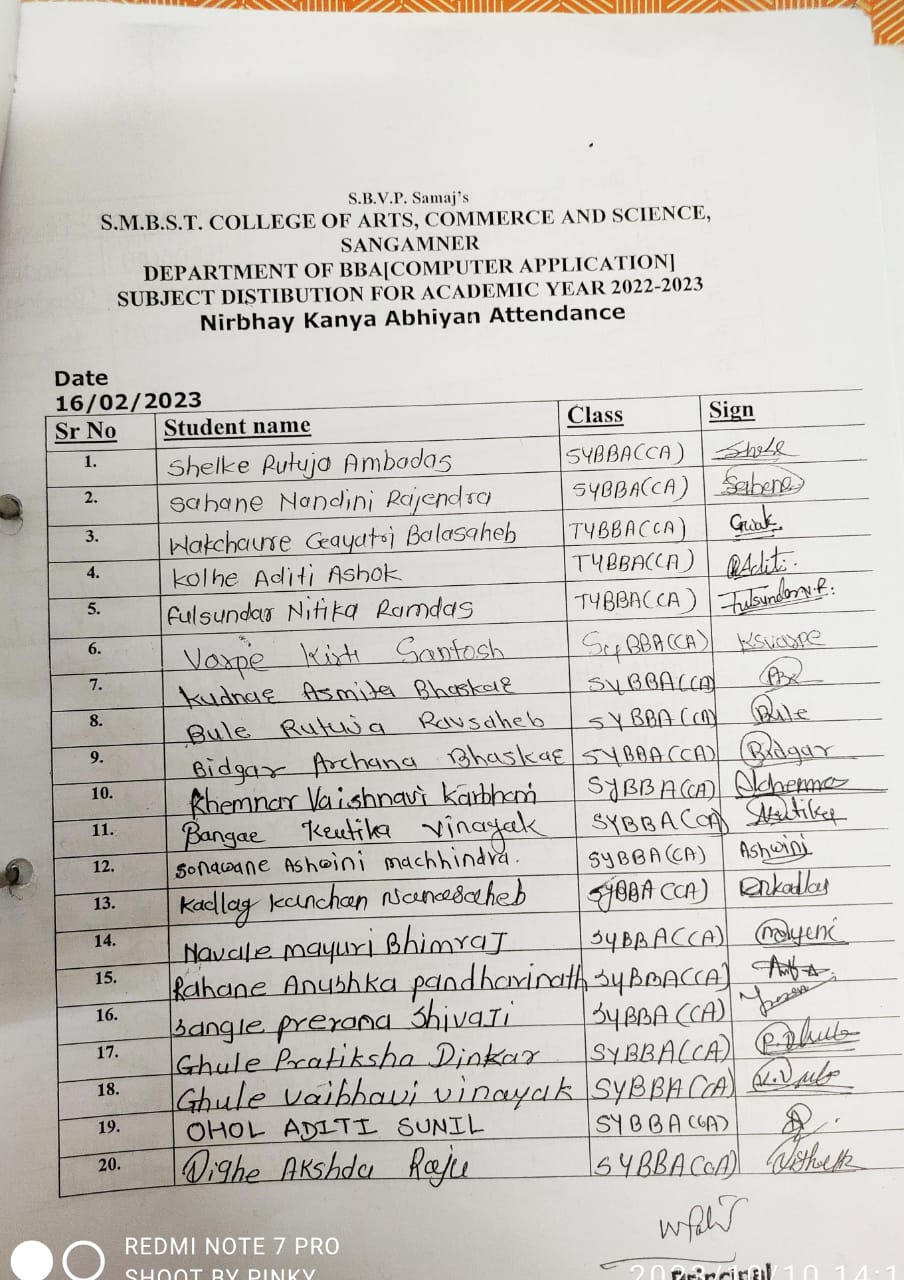 S.B.V.P. Samaj's
S.M.B.S.T. COLLEGE OF ARTS, COMMERCE AND SCIENCE,
SANGAMNER
DEPARTMENT OF BBA[COMPUTER APPLICATION]
SUBJECT DISTIBUTION FOR ACADEMIC YEAR 2022-2023
Nirbhay Kanya Abhiyan Attendance
Date
16/02/2023
Sr No Student name Class Sign
1. Shelke Rutuja Ambadas SYBBA(CA)
2. Sahane Nandini Rajendra SYBBA(CA)
3. Wakchaure Gayatri Balasaheb TYBBA(CA) Gwak.
4. Kolhe Aditi Ashok TYBBA(CA) Aditi.
5. Fulsundar Nitika Ramdas TYBBA(CA) Fulsundar N.R.
6. Varpe Kirti Santosh SyBBA(CA) Ksvarpe
7. Kudnar Asmita Bhaskar SYBBA(CA)
8. Bule Rutuja Ravsaheb SYBBA(CA) Bule
9. Bidgar Archana Bhaskar SYBBA(CA) Bidgar
10. Khemnar Vaishnavi Karbhari SYBBA(CA)
11. Bangar Keutika Vinayak SYBBA(CA)
12. Sonawane Ashwini machhindra. SYBBA(CA) Ashwini
13. Kadlag Kanchan Nanasaheb SYBBA(CA)
14. Navale mayuri Bhimraj SYBBA(CA)
15. Rahane Anushka pandharinath SYBBA(CA)
16. Sangle prerana Shivaji SYBBA(CA)
17. Ghule Pratiksha Dinkar SYBBA(CA)
18. Ghule vaibhavi vinayak SYBBA(CA)
19. OHOL ADITI SUNIL SYBBA(CA)
20. Dighe Akshda Raju SYBBA(CA)
Principal
REDMI NOTE 7 PRO
SHOOT BY PINKY
2023/10/10 14:1